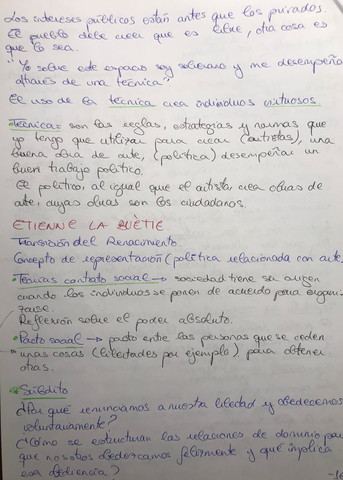 Los intereses públicos están antes que los privados.
El pueblo debe creer que es libre, otra cosa es
que lo sea.
"Yo sobre este espacio soy soberano y me desempeño
através de una técnica."
El uso de la técnica crea individuos virtuosos.
·Técnica = son las reglas, estrategias y normas que
yo tengo que utilizar para crear (artistas), una
buena obra de arte, (política) desempeñar un
buen trabajo político.
El político, al igual que el artista, crea obras de
arte, cuyas obras son los ciudadanos.
ETIENNE LA BUÈTIE
Transición del Renacimiento.
Concepto de representación (política relacionada con arte
·Teorías contrato social → sociedad tiene su origen
cuando los individuos se ponen de acuerdo para organi-
zarse.
Reflexión sobre el poder absoluto.
·Pacto social → pacto entre las personas que se ceden
unas cosas (libertades por ejemplo) para obtener
otras.
·Súbdito
¿Por qué renunciamos a nuestra libertad y obedecemos
voluntariamente?
¿Cómo se estructuran las relaciones de dominio para
que nosotros obedezcamos felizmente y qué implica
esa obediencia?